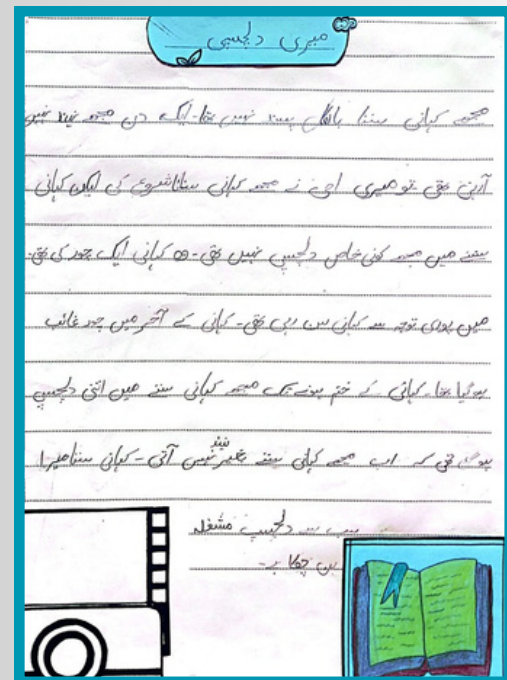 میری دلچسپی
مجھے کہانی سننا بالکل پسند نہیں تھا۔ ایک دن مجھے نیند نہیں
آرہی تھی تو میری امی نے مجھے کہانی سنانا شروع کی لیکن کہانی
سننے میں مجھے کوئی خاص دلچسپی نہیں تھی۔ وہ کہانی ایک چور کی تھی۔
میں پوری توجہ سے کہانی سن رہی تھی۔ کہانی کے آخر میں چور غائب
ہوگیا تھا۔ کہانی کے ختم ہونے تک مجھے کہانی سننے میں اتنی دلچسپی
ہوگئی تھی کہ اب مجھے کہانی سنے بغیر نیند نہیں آتی۔ کہانی سننا میرا
سب سے دلچسپ مشغلہ
بن چکا ہے۔